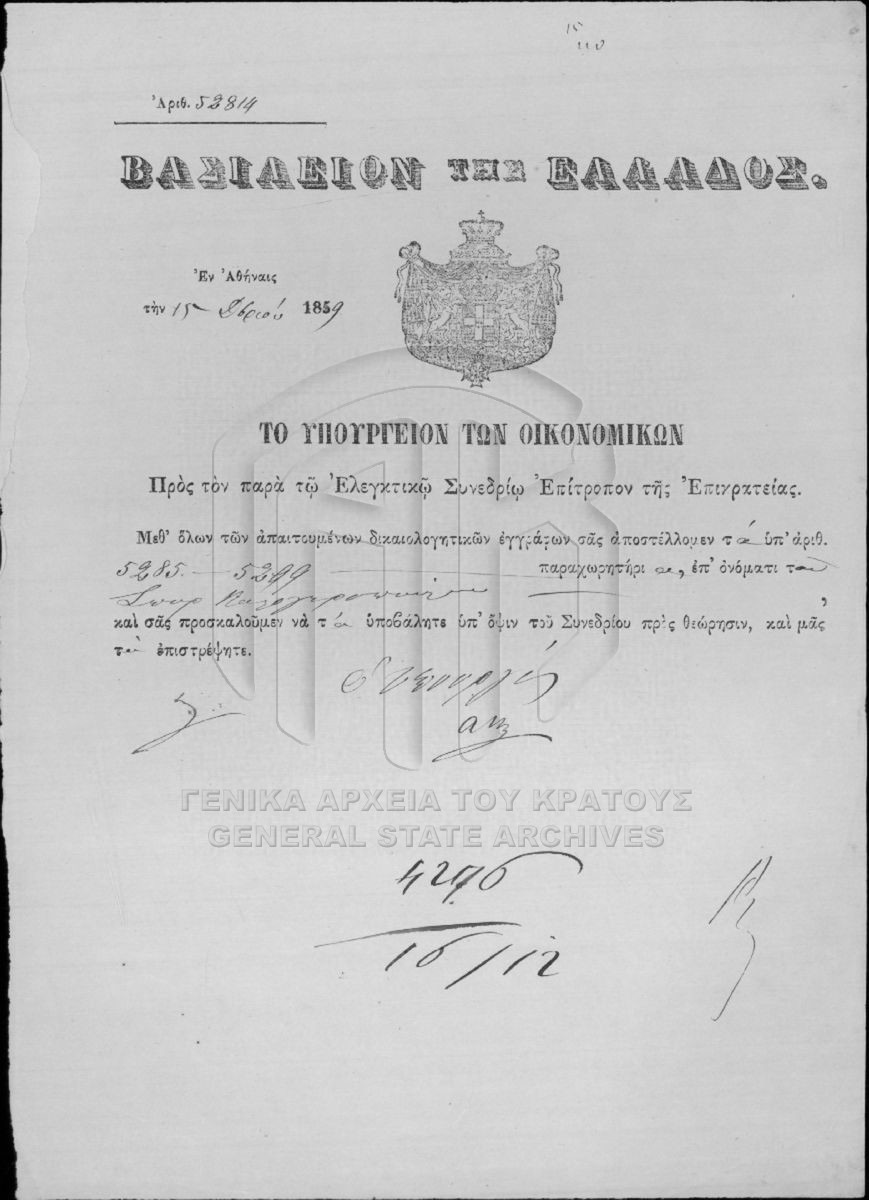 15
Ἀριθ. 52814
ΒΑΣΙΛΕΙΟΝ ΤΗΣ ΕΛΛΑΔΟΣ.
Ἐν Ἀθήναις
τὴν 15 Δβρίου 1859
ΤΟ ΥΠΟΥΡΓΕΙΟΝ ΤΩΝ ΟΙΚΟΝΟΜΙΚΩΝ
Πρὸς τὸν παρὰ τῷ Ἐλεγκτικῷ Συνεδρίῳ Ἐπίτροπον τῆς Ἐπικρατείας.
Μεθ' ὅλων τῶν ἀπαιτουμένων δικαιολογητικῶν ἐγγράφων σᾶς ἀποστέλλομεν τὰ ὑπ' ἀριθ.
5285 — 5299 — παραχωρητήρια, ἐπ' ὀνόματι τοῦ
Σπυρ
καὶ σᾶς προσκαλοῦμεν νὰ τὰ ὑποβάλητε ὑπ' ὄψιν τοῦ Συνεδρίου πρὸς θεώρησιν, καὶ μᾶς
τὰ ἐπιστρέψητε.
Ὁ Ὑπουργός
ΓΕΝΙΚΑ ΑΡΧΕΙΑ ΤΟΥ ΚΡΑΤΟΥΣ
GENERAL STATE ARCHIVES
16/12